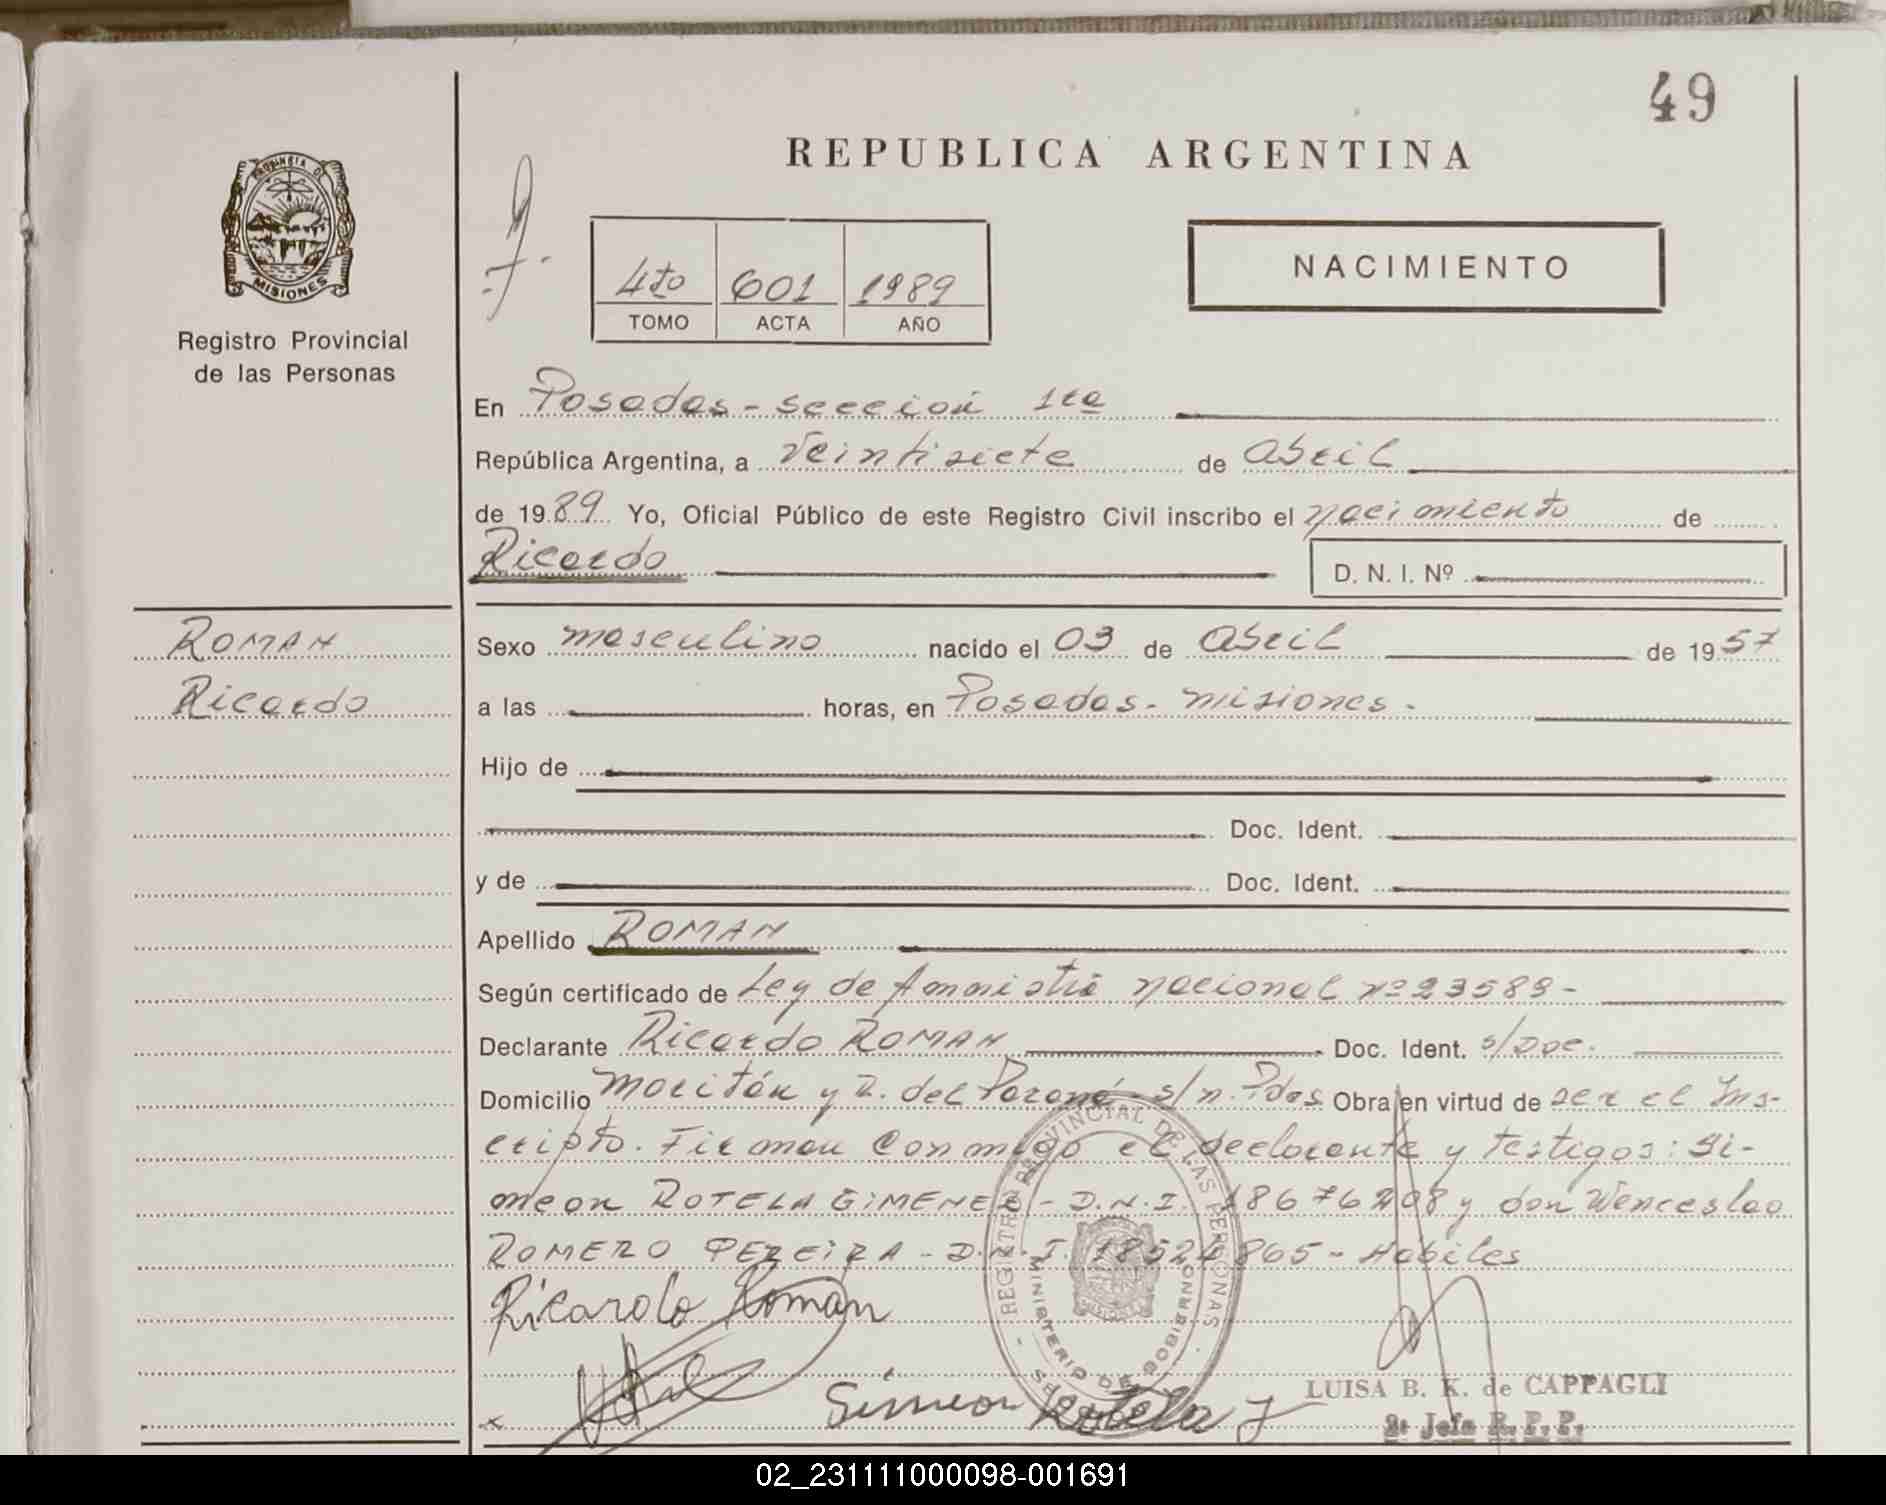 49
REPUBLICA ARGENTINA
PROVINCIA DE
MISIONES
Registro Provincial
de las Personas
4to 601 1989
TOMO ACTA AÑO
NACIMIENTO
En Posadas - sección 1ra
República Argentina, a Veintisiete de Abril
de 1989 Yo, Oficial Público de este Registro Civil inscribo el nacimiento de
Ricardo
D. N. I. Nº
ROMAN
Ricardo
Sexo masculino nacido el 03 de Abril de 1957
a las horas, en Posadas - misiones -
Hijo de
Doc. Ident.
y de Doc. Ident.
Apellido ROMAN
Según certificado de Ley de Amnistía nacional nº 23589 -
Declarante Ricardo ROMAN Doc. Ident. s/Doc.
Domicilio y del Paraná - s/n. Pdas Obra en virtud de ser el Ins-
cripto. Firman conmigo el declarante y testigos: Si-
meon ROTELA GIMENEZ - D.N.I. 18676208 y don Wenceslao
ROMERO PEREIRA - D.N.I. 18524865 - Habiles
Ricardo Roman
Simeon Rotela J
REGISTRO PROVINCIAL DE LAS PERSONAS
MINISTERIO DE GOBIERNO
LUISA B. K. de CAPPAGLI
2ª Jefa R. P. P.
02_231111000098-001691